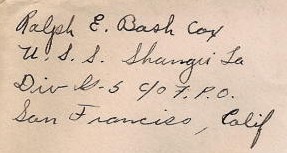 Ralph E. Bash Cox
U.S.S. Shangri La
Div G-5 c/o F.P.O.
San Francisco, Calif